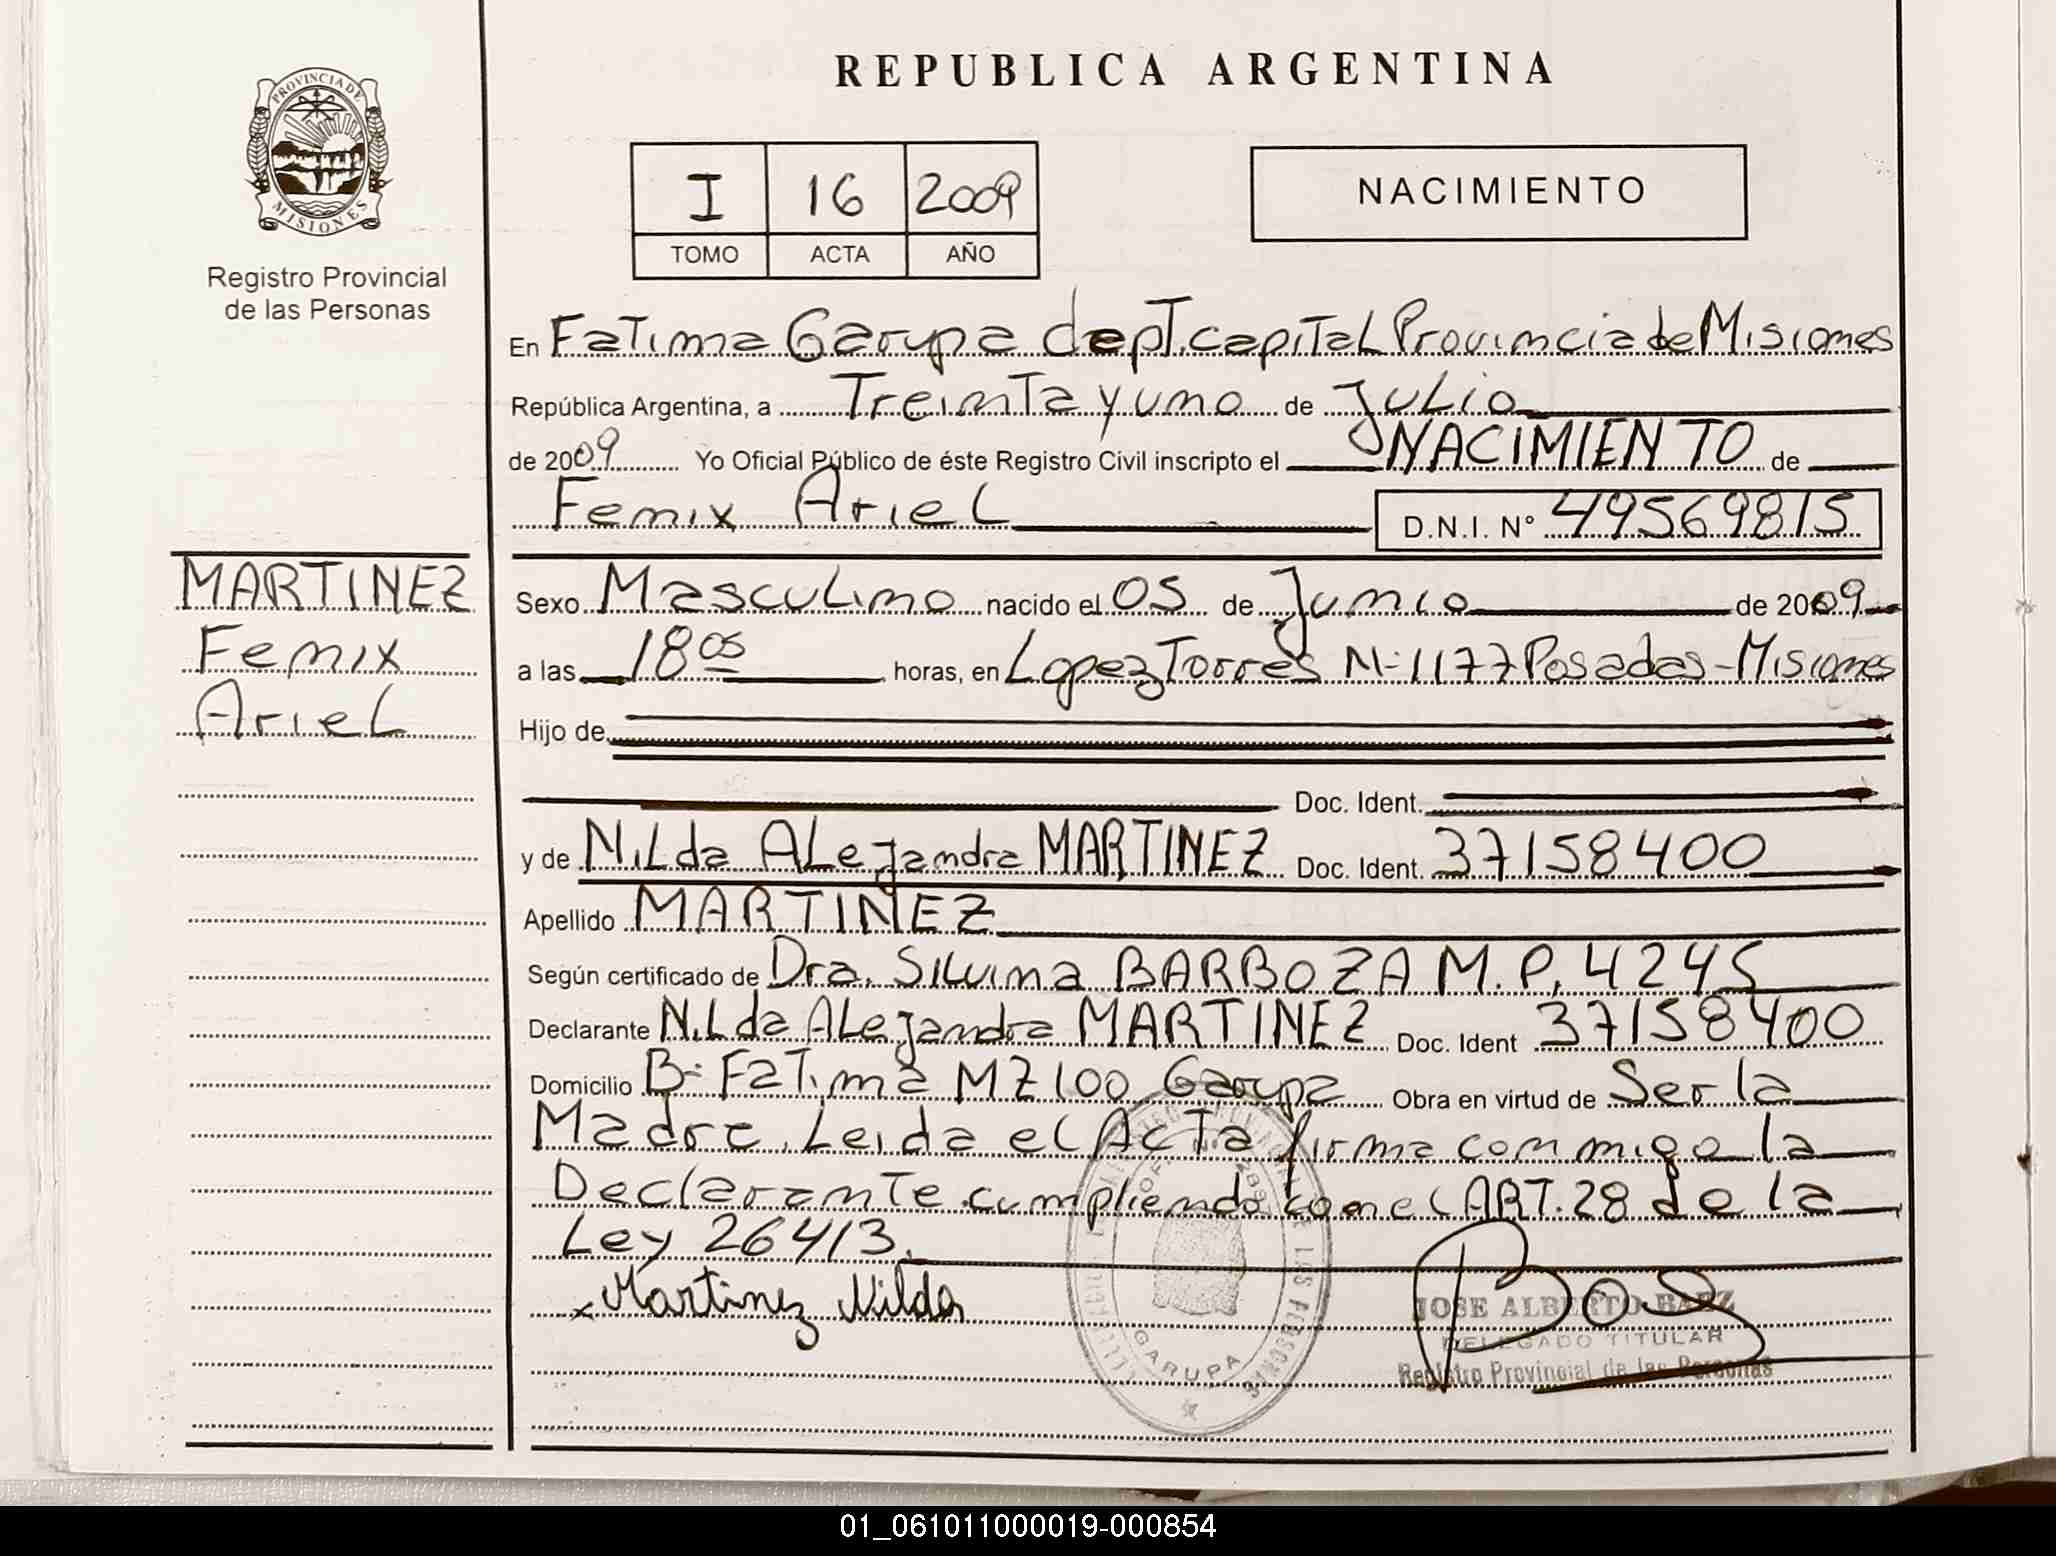 PROVINCIA DE
MISIONES
Registro Provincial
de las Personas
REPUBLICA ARGENTINA
I 16 2009
TOMO ACTA AÑO
NACIMIENTO
En Fatima Garupa dept. capital Provincia de Misiones
República Argentina, a Treinta y uno de Julio
de 2009 Yo Oficial Público de éste Registro Civil inscripto el NACIMIENTO de
Fenix Ariel D.N.I. N° 49569815
MARTINEZ
Fenix
Ariel
Sexo Masculino nacido el 05 de Junio de 2009
a las 18 05 horas, en Lopez Torres Nº 1177 Posadas - Misiones
Hijo de
Doc. Ident.
y de Nilda Alejandra MARTINEZ Doc. Ident. 37158400
Apellido MARTINEZ
Según certificado de Dra. Silvina BARBOZA M.P. 4245
Declarante Nilda Alejandra MARTINEZ Doc. Ident 37158400
Domicilio Bº Fatima MZ 100 Garupa Obra en virtud de Ser la
Madre. Leida el Acta firma conmigo la
Declarante. cumpliendo con el ART. 28 de la
Ley 26413.
x Martinez Nilda
GARUPA
JOSE ALBERTO BAEZ
DELEGADO TITULAR
Registro Provincial de las Personas
01_061011000019-000854